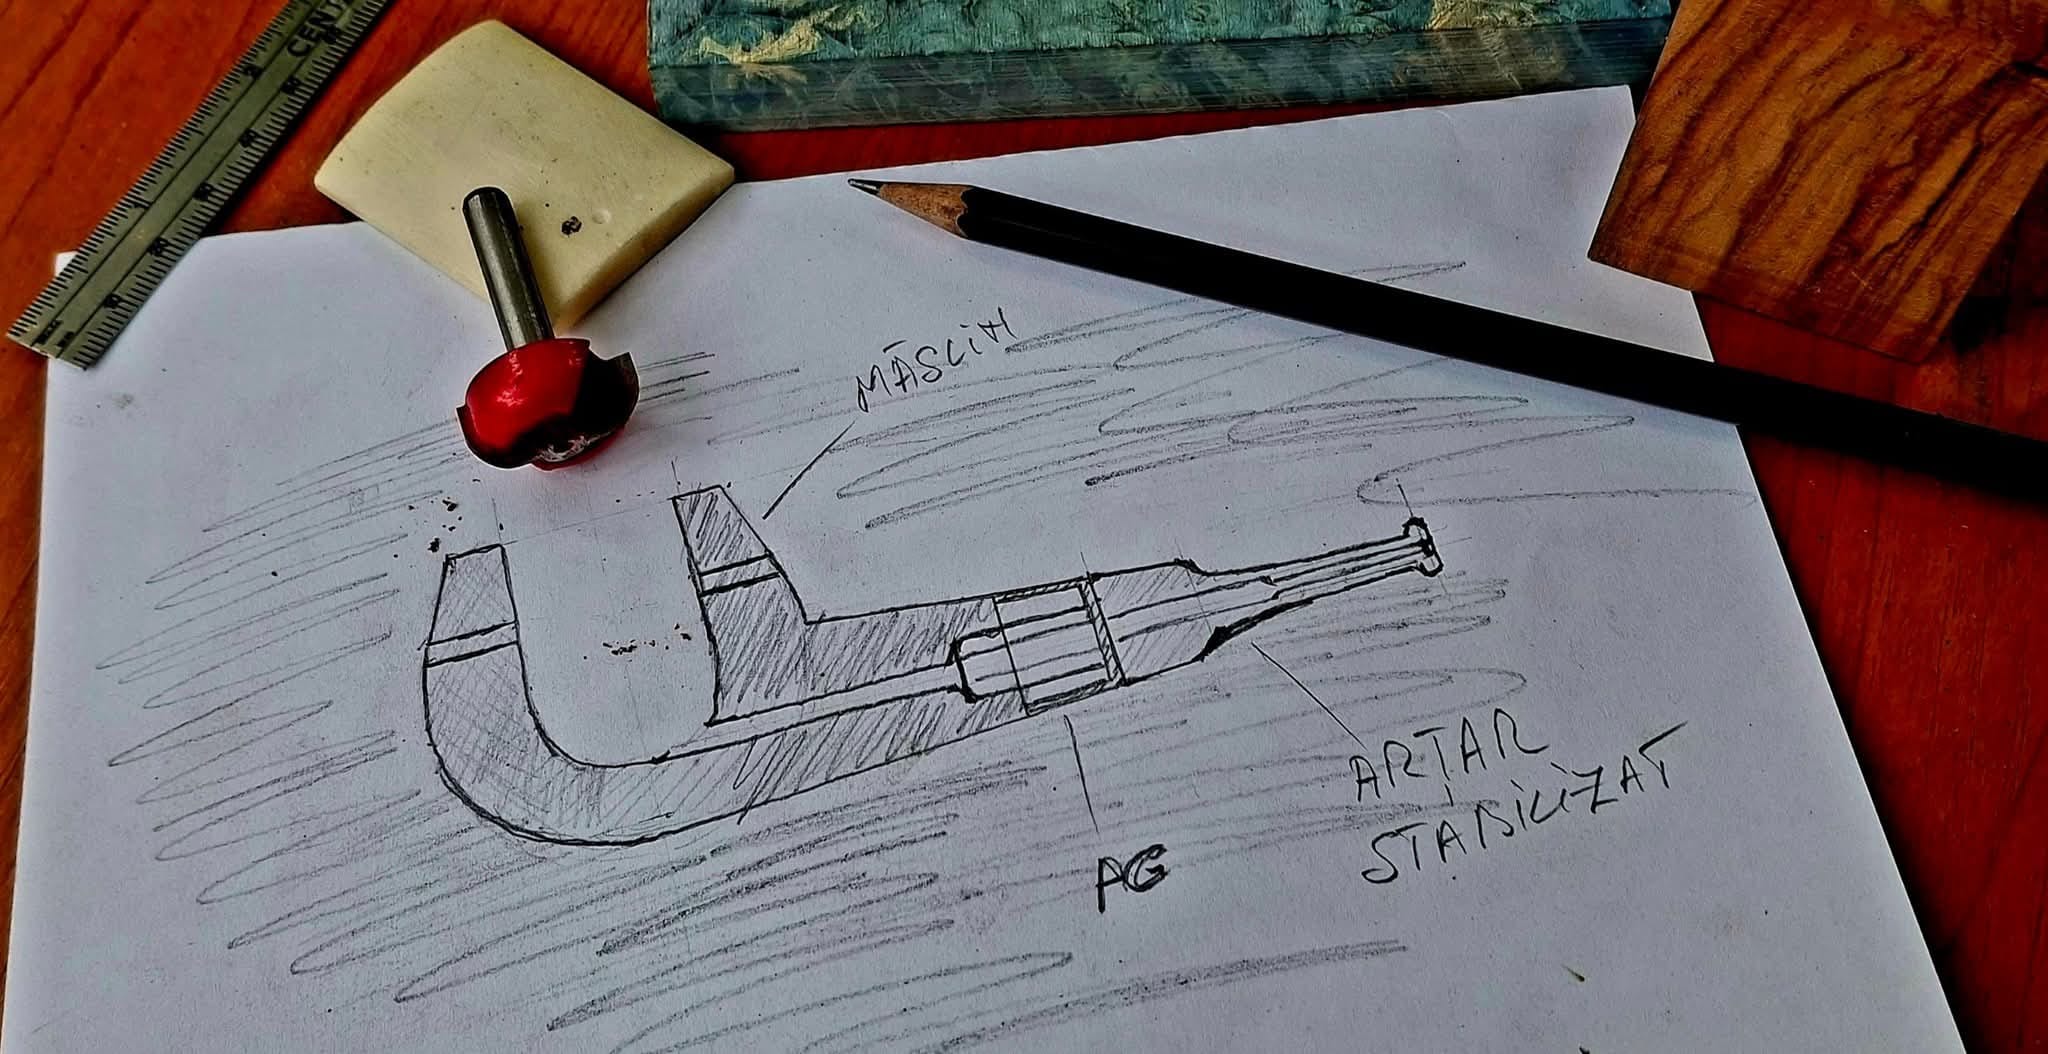 CENT
MĂSLIN
AG
ARȚAR
STABILIZAT